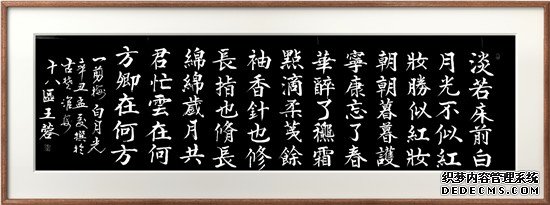 淡若床前白
月光不似紅
妝勝似紅妝
朝朝暮暮護
寧康忘了春
華醉了龝霜
點滴柔荑餘
袖香針也修
長指也脩長
綿綿歲月共
君忙雲在何
方卿在何方
一剪梅 白月光
辛丑孟夏撰於
古楚淮安
十八區王蓉
织梦内容管理系统
DEDECMS.COM